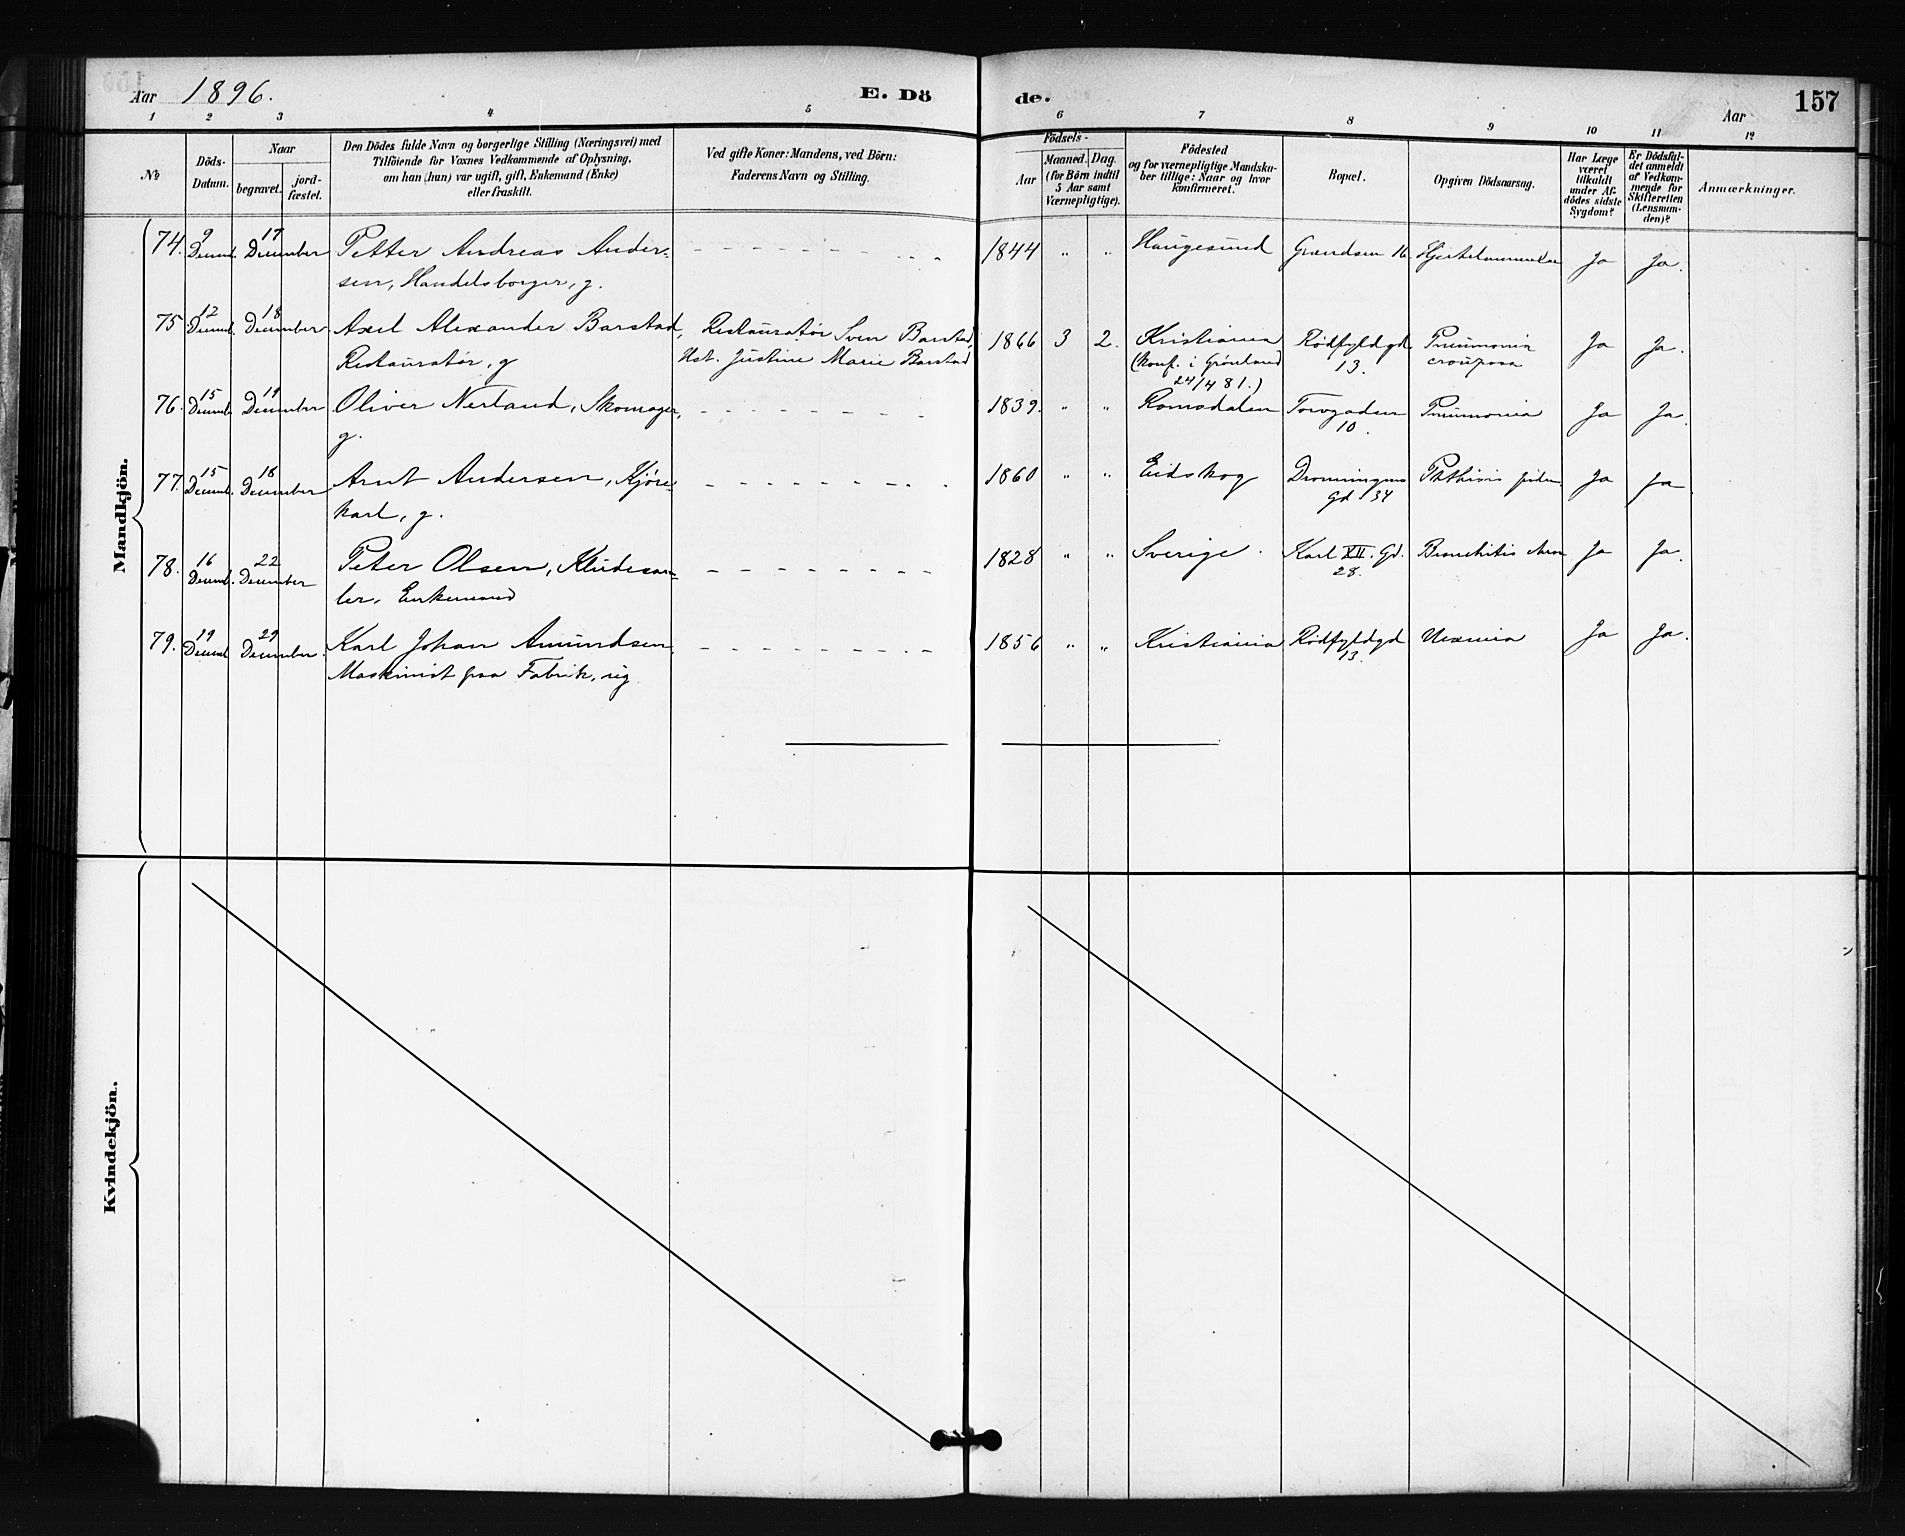 Aar 1896. E. Dö de. Aar 157
1 2 3 4 5 6 7 8 9 10 11 12
№
Döds-
Datum.
Naar
begravet.
jord-
fæstet.
Den Dödes fulde Navn og borgerlige Stilling (Næringsvei) med
Tilföiende for Voxnes Vedkommende af Oplysning,
om han (hun) var ugift, gift, Enkemand (Enke)
eller fraskilt.
Ved gifte Koner: Mandens, ved Börn:
Faderens Navn og Stilling.
Födsels-
Aar
Maaned.
Dag.
(for Börn indtil
5 Aar samt
Værnepligtige).
Födested
og for værnepligtige Mandska-
ber tillige: Naar og hvor
konfirmeret.
Bopæl.
Opgiven Dödsaarsag.
Har Læge
været
tilkaldt
under Af-
dödes sidste
Sygdom?
Er Dödsfal-
det anmeldt
af Vedkom-
mende for
Skifteretten
(Lensman-
den)?
Anmærkninger.
Mandkjön.
74. 9 Decemb. 17 December Petter Andreas Ander-
sen, Handelsborger, g. 1844 " " Haugesund Grændsen 16 Ja Ja.
75 12 Decemb. 18 December Axel Alexander Barstad, Restauratør Sven Barstad,
Restauratør, g Hst. Justine Marie Barstad 1866 3 2. Kristiania
(konf. i Grønland
24/4 81.) Rødfyldgd.
13. Pneumonia
crouposa Ja Ja.
76. 15 Decemb. 19 December Oliver Nerland, Skomager,
g. 1839. " " Romsdalen Torvgaden
10. Pneumonia Ja Ja.
77. 15 Decemb. 18 December Arnt Andersen, Kjøre-
karl, g. 1860 " " Eidskog Dronningens
Gd 34 Phthisis Ja Ja.
78. 16 Decemb. 22 December Peter Olsen, Kludesam-
ler, Enkemand 1828 " " Sverige. Karl XII. Gd.
28. Bronchitis chron Ja Ja.
79. 19 Decemb 29 December. Karl Johan Amundsen,
Maskinist paa Fabrik, ug 1856 " " Kristiania Rødfyldgd
13. Uræmia Ja Ja.
Kvindekjön.